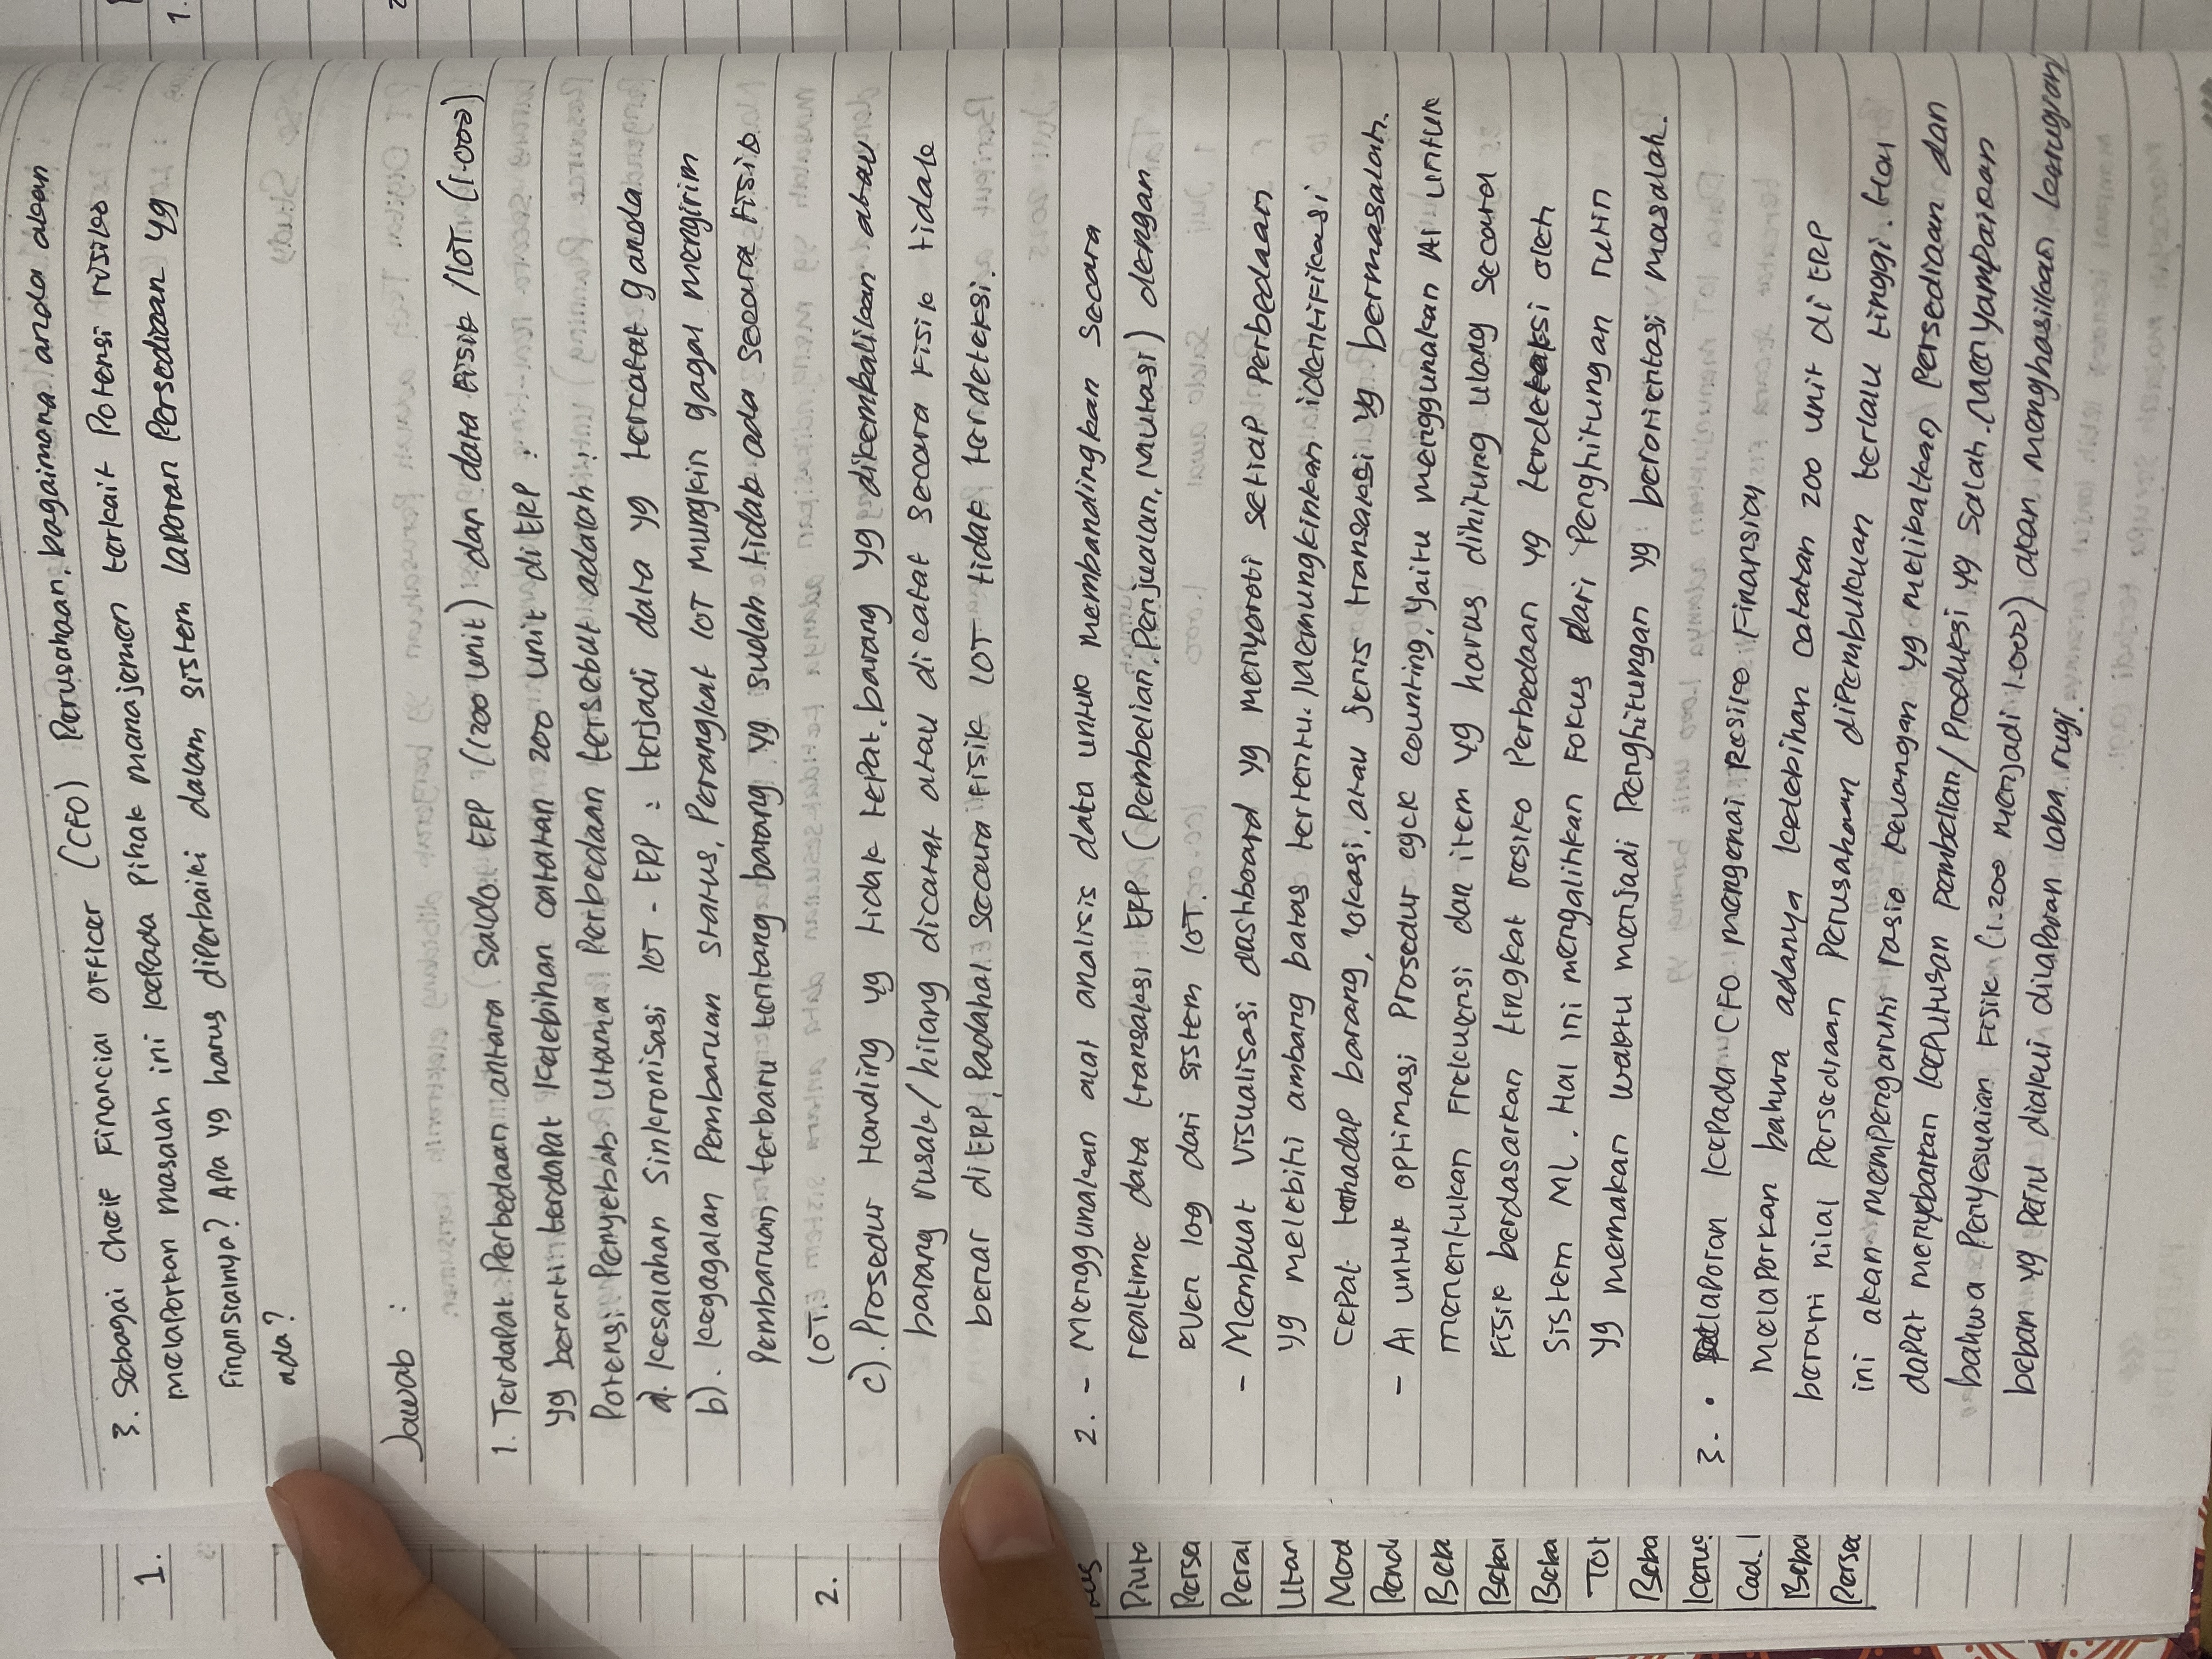 3. Sebagai Cheif Financial Officer (CFO) Perusahaan, bagaimana anda akan
melaporkan masalah ini kepada Pihak manajemen terkait Potensi risiko
Finansialnya? Apa yg harus diperbaiki dalam sistem laporan Persediaan yg
ada?
Jawab :
1. Terdapat Perbedaan antara saldo ERP (1200 unit) dan data Fisik /IOT (1.000)
yg berarti terdapat kelebihan catatan 200 unit di ERP.
Potensi Penyebab utama Perbedaan tersebut adalah :
a. kesalahan Sinkronisasi IOT - ERP : terjadi data yg tercatat ganda.
b). kegagalan Pembaruan status, Perangkat IOT mungkin gagal mengirim
Pembaruan terbaru tentang barang yg sudah tidak ada secara Fisik
IOT.
c). Prosedur Handling yg tidak tepat. barang yg dikembalikan atau
barang rusak/hilang dicatat atau dicatat secara Fisik tidak
benar di ERP, Padahal secara Fisik IOT tidak terdeteksi.
2. - Menggunakan alat analisis data untuk membandingkan secara
realtime data transaksi ERP (Pembelian, Penjualan, Mutasi) dengan
even log dari sistem IOT.
- Membuat visualisasi dashboard yg menyoroti setiap Perbedaan
yg melebihi ambang batas tertentu. Memungkinkan identifikasi
cepat terhadap barang, lokasi, atau jenis transaksi yg bermasalah.
- AI untuk optimasi Prosedur cycle counting, yaitu menggunakan AI untuk
menentukan Frekuensi dan item yg harus dihitung ulang secara
Fisik berdasarkan tingkat resiko Perbedaan yg terdeteksi oleh
Sistem ML. Hal ini mengalihkan Fokus dari Penghitungan rutin
yg memakan waktu menjadi Penghitungan yg berorientasi masalah.
3. • Pelaporan kepada CFO mengenai Resiko Finansial
Melaporkan bahwa adanya kelebihan catatan 200 unit di ERP
berarti nilai Persediaan Perusahaan dipembukuan terlalu tinggi. Hal
ini akan mempengaruhi rasio keuangan yg melibatkan Persediaan dan
dapat menyebabkan keputusan Pembelian/Produksi yg salah. Menyampaikan
bahwa Penyesuaian Fisik (1.200 menjadi 1.000) akan menghasilkan kerugian/
beban yg Perlu diakui dilaporan laba rugi.
1.
2.
Piuta
Persed
Peral
Utan
Mod
Pend
Beba
Beba
Beba
Tot
Beba
Cad.
Beba
Persed